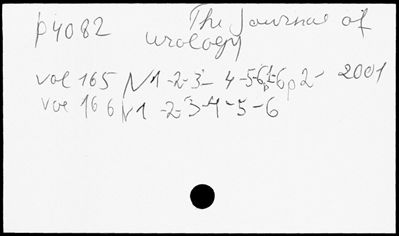 p4082 The Journal of
urology
vol 165 N1-2-3-4-5-6p1-6p2- 2001
vol 166 N1-2-3-4-5-6